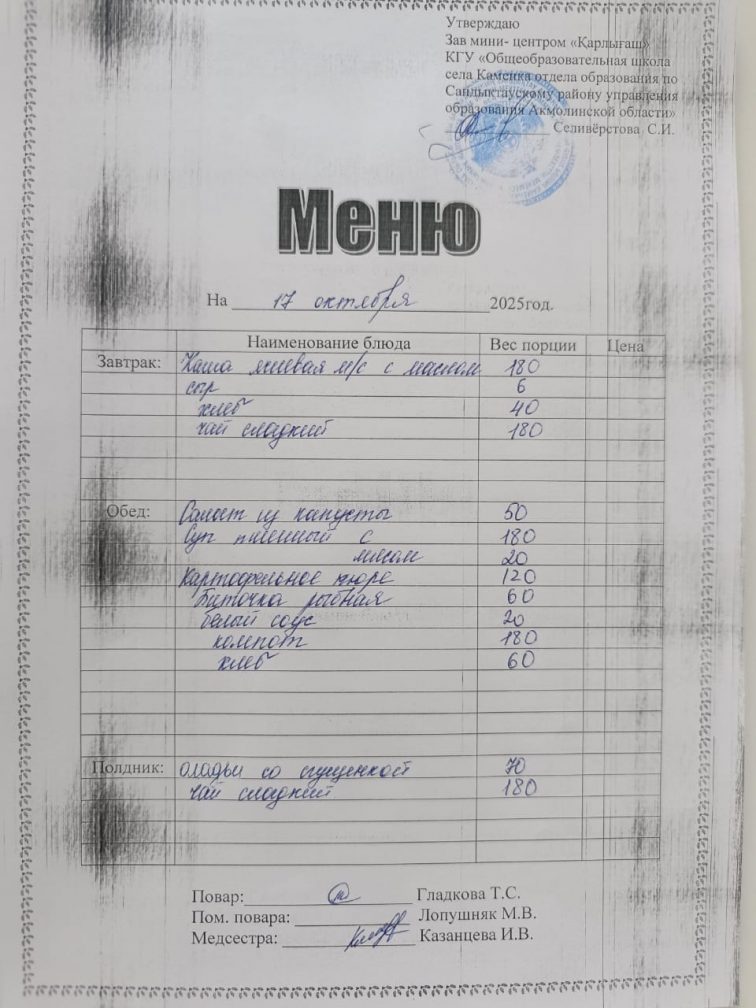 Утверждаю
Зав мини- центром «Қарлығаш»
КГУ «Общеобразовательная школа
села Каменка отдела образования по
Сандыктаускому району управления
образования Акмолинской области»
Селивёрстова С.И.
Меню
На 17 октября 2025год.
Наименование блюда Вес порции Цена
Завтрак: Каша ячневая м/с с маслом 180
сыр 6
хлеб 40
чай сладкий 180
Обед: Салат из капусты 50
Суп пшенный с 180
мясом 20
Картофельное пюре 120
Биточка рыбная 60
белый соус 20
компот 180
хлеб 60
Полдник: оладьи со сгущенкой 70
чай сладкий 180
Повар: Гладкова Т.С.
Пом. повара: Лопушняк М.В.
Медсестра: Казанцева И.В.